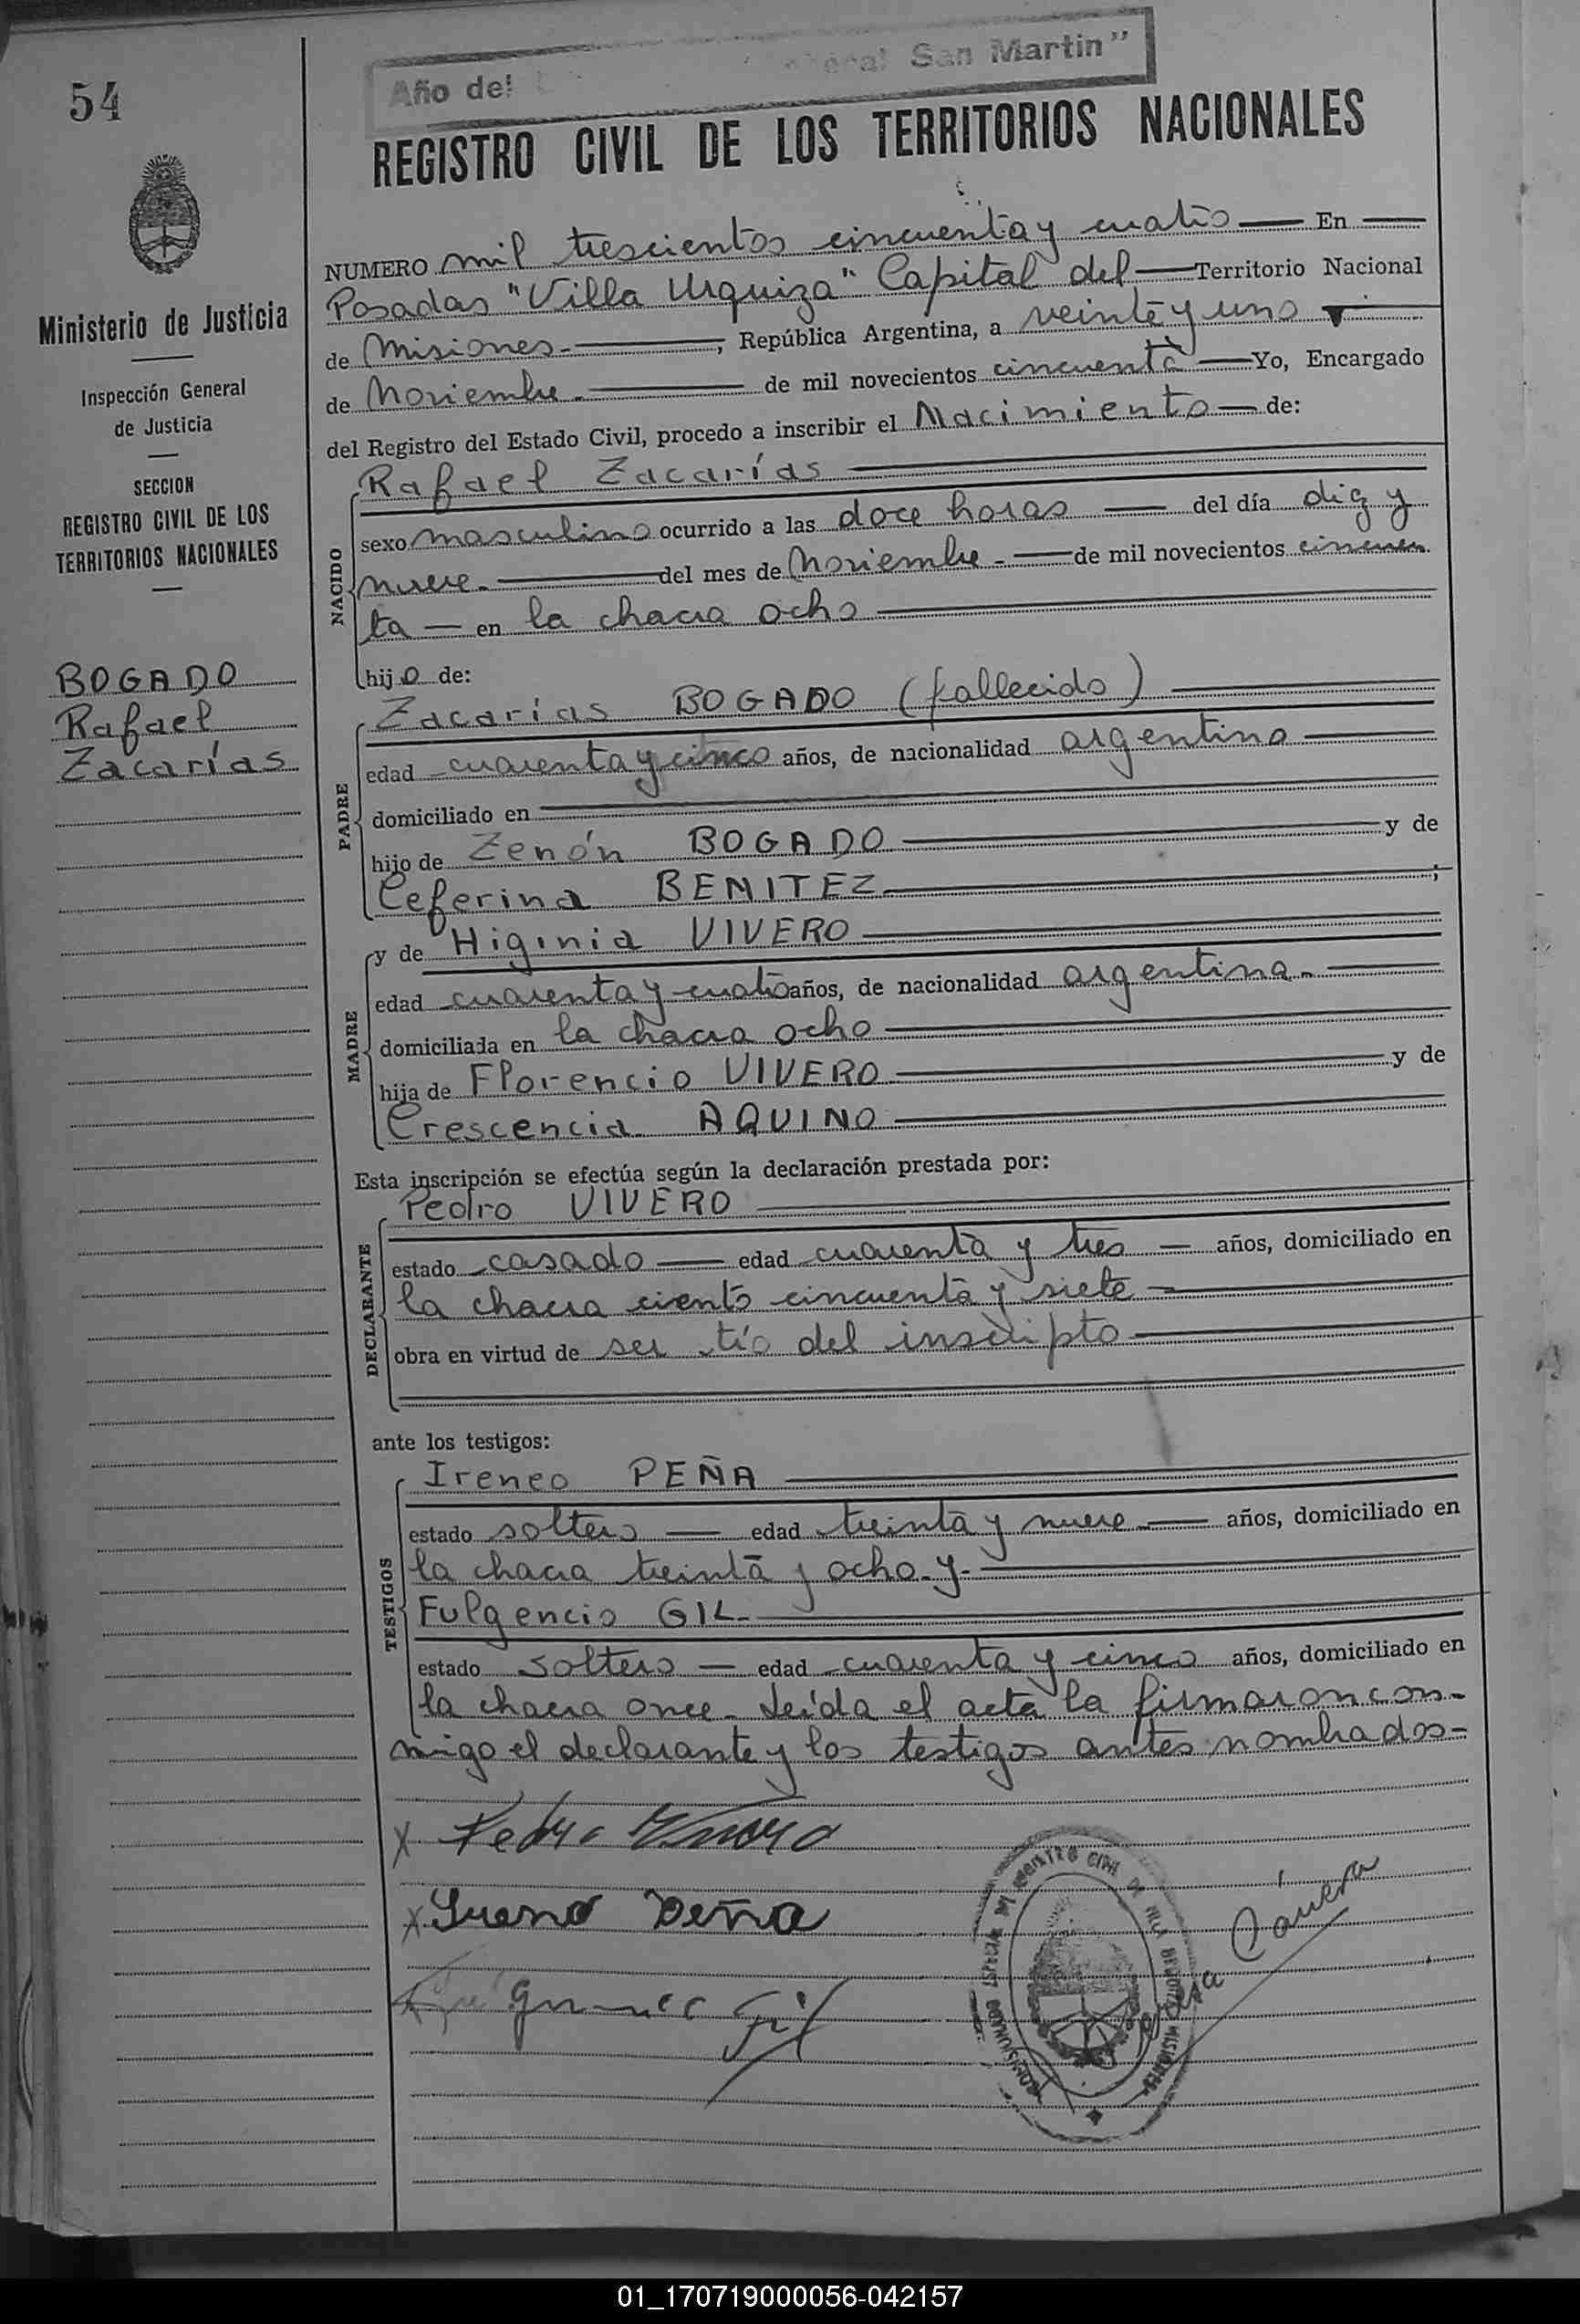 54
Año del General San Martin"
REGISTRO CIVIL DE LOS TERRITORIOS NACIONALES
Ministerio de Justicia
Inspección General
de Justicia
SECCION
REGISTRO CIVIL DE LOS
TERRITORIOS NACIONALES
BOGADO
Rafael
Zacarías
NUMERO mil trescientos cincuenta y cuatro — En —
Posadas "Villa Urquiza" Capital del — Territorio Nacional
de Misiones. —, República Argentina, a veinte y uno
de Noviembre. — de mil novecientos cincuenta — Yo, Encargado
del Registro del Estado Civil, procedo a inscribir el Nacimiento — de:
NACIDO
Rafael Zacarías
sexo masculino ocurrido a las doce horas — del día diez y
nueve. — del mes de Noviembre. — de mil novecientos cincuen
ta — en la chacra ocho
hijo de:
PADRE
Zacarías BOGADO (fallecido)
edad cuarenta y cinco años, de nacionalidad argentino
domiciliado en
hijo de Zenón BOGADO — y de
Ceferina BENITEZ. — ;
MADRE
y de Higinia VIVERO
edad cuarenta y cuatro años, de nacionalidad argentina. —
domiciliada en la chacra ocho
hija de Florencio VIVERO — y de
Crescencia AQUINO
Esta inscripción se efectúa según la declaración prestada por:
DECLARANTE
Pedro VIVERO
estado casado — edad cuarenta y tres — años, domiciliado en
la chacra ciento cincuenta y siete —
obra en virtud de ser tío del inscripto
ante los testigos:
TESTIGOS
Ireneo PEÑA
estado soltero — edad treinta y nueve. — años, domiciliado en
la chacra treinta y ocho. y. —
Fulgencio GIL. —
estado soltero — edad cuarenta y cinco años, domiciliado en
la chacra once. Leída el acta la firmaron con-
migo el declarante y los testigos antes nombrados.-
x Pedro Vivero
x Ireneo Peña
Gil
01_170719000056-042157